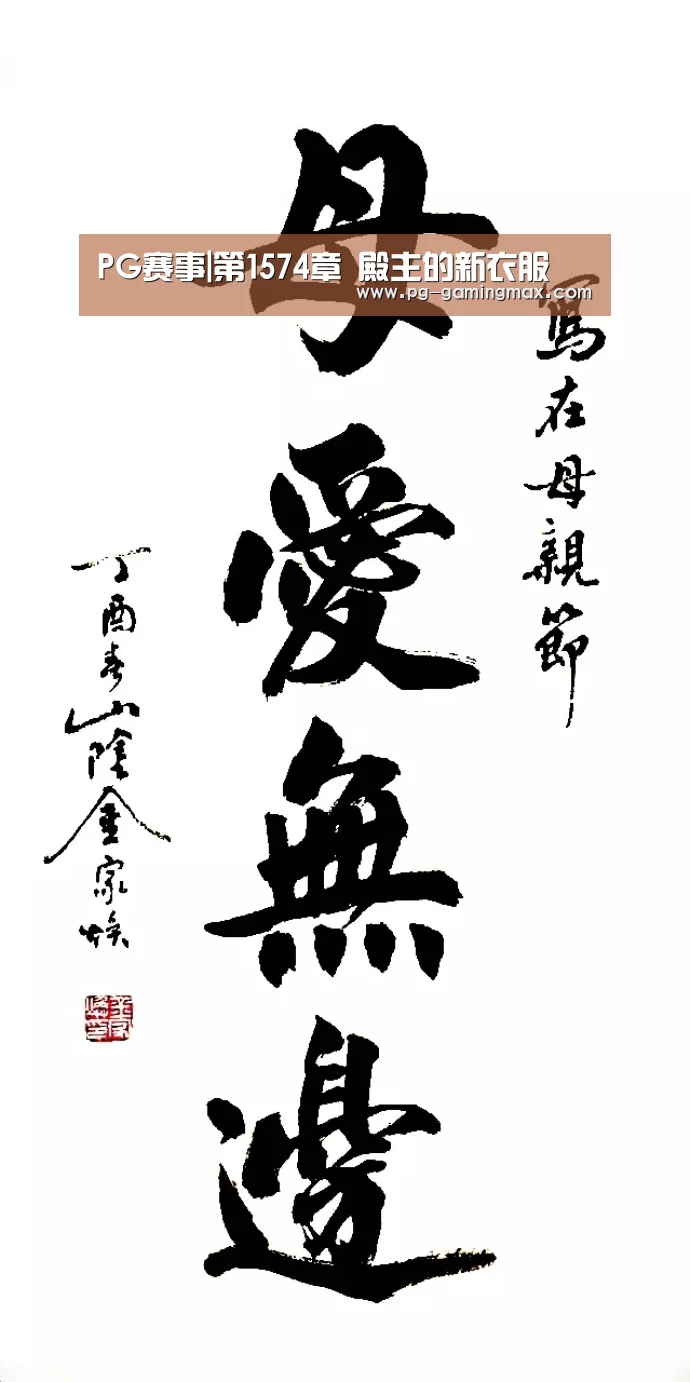 PG赛事|第1574章 殿主的新衣服
www.pg-gamingmax.com
寫在母親節
母愛無邊
丁酉春山陰金家煥